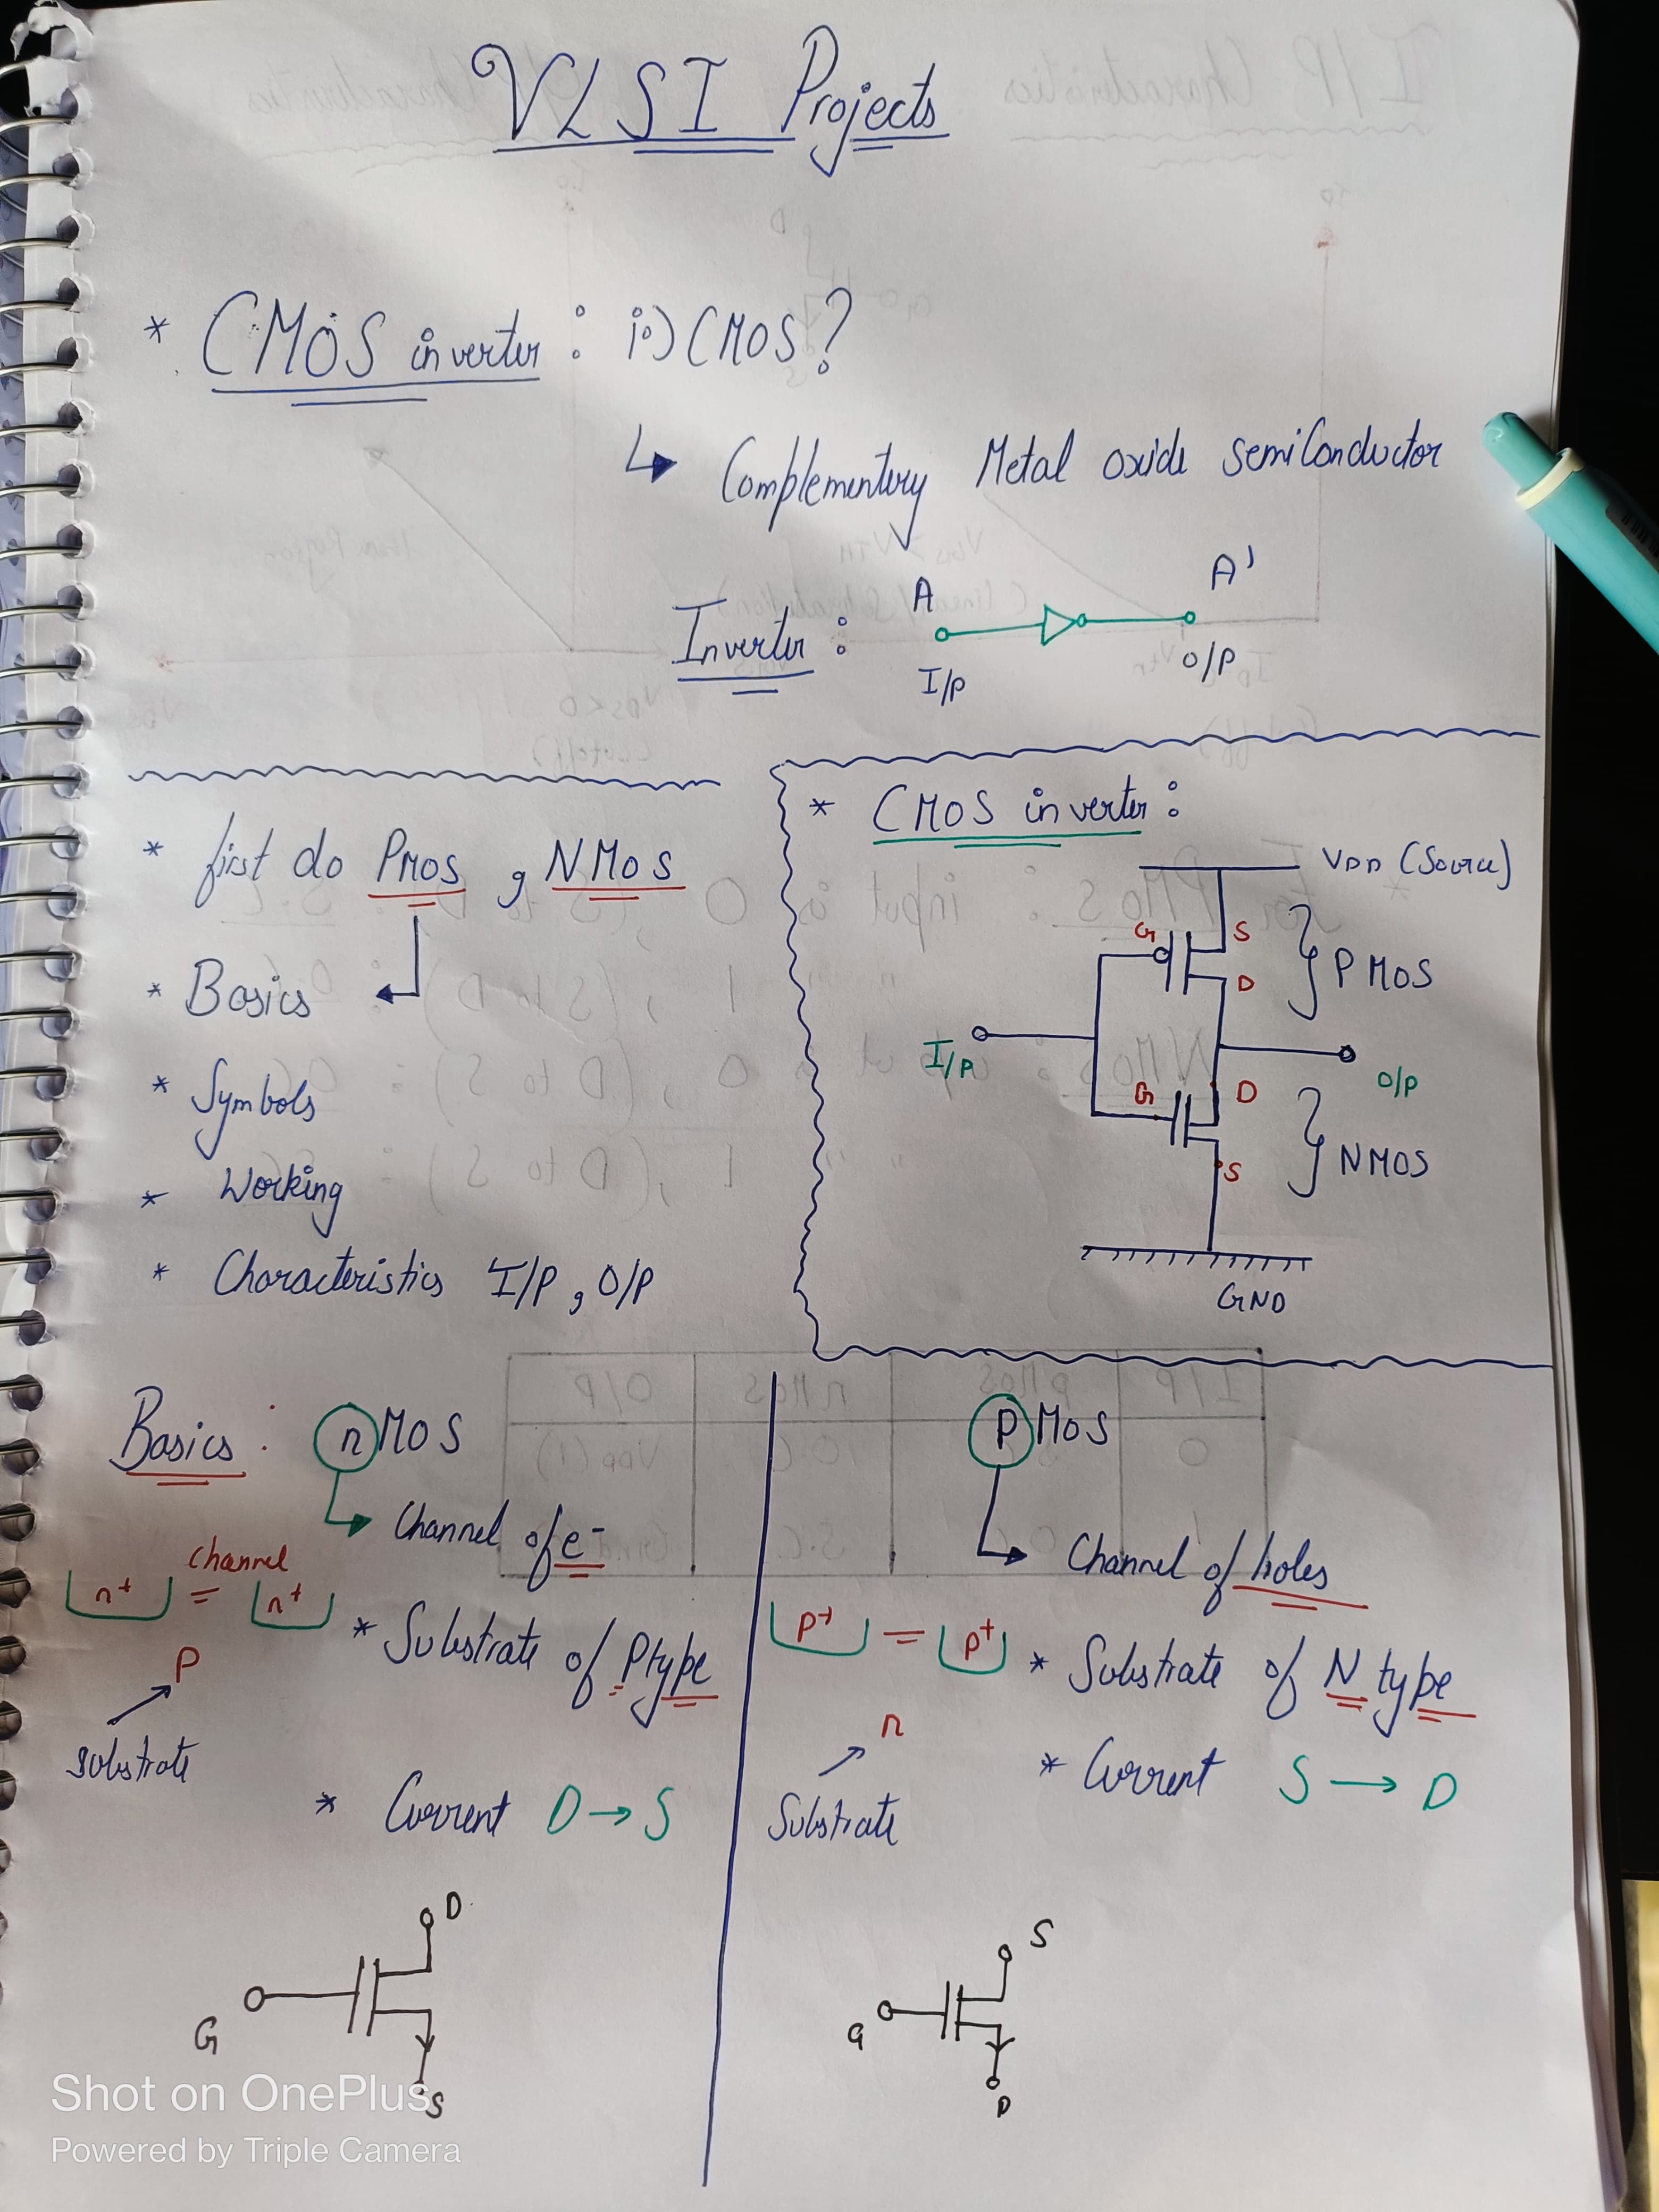 VLSI Projects
* CMOS inverter : i) CMOS?
↳ Complementary Metal oxide semiConductor
Inverter :
A
A'
I/P
O/P
* first do PMOS , NMOS
* Basics
* Symbols
* Working
* Characteristics I/P , O/P
* CMOS inverter :
VDD (Source)
G
S
D
PMOS
I/P
O/P
G
D
S
NMOS
GND
Basics : nMOS
Channel of e-
channel
n+ = n+
* Substrate of Ptype
P
Substrate
* Current D → S
G
D
S
PMOS
Channel of holes
P+ = P+
* Substrate of N type
n
Substrate
* Current S → D
G
S
D
Shot on OnePlus
Powered by Triple Camera